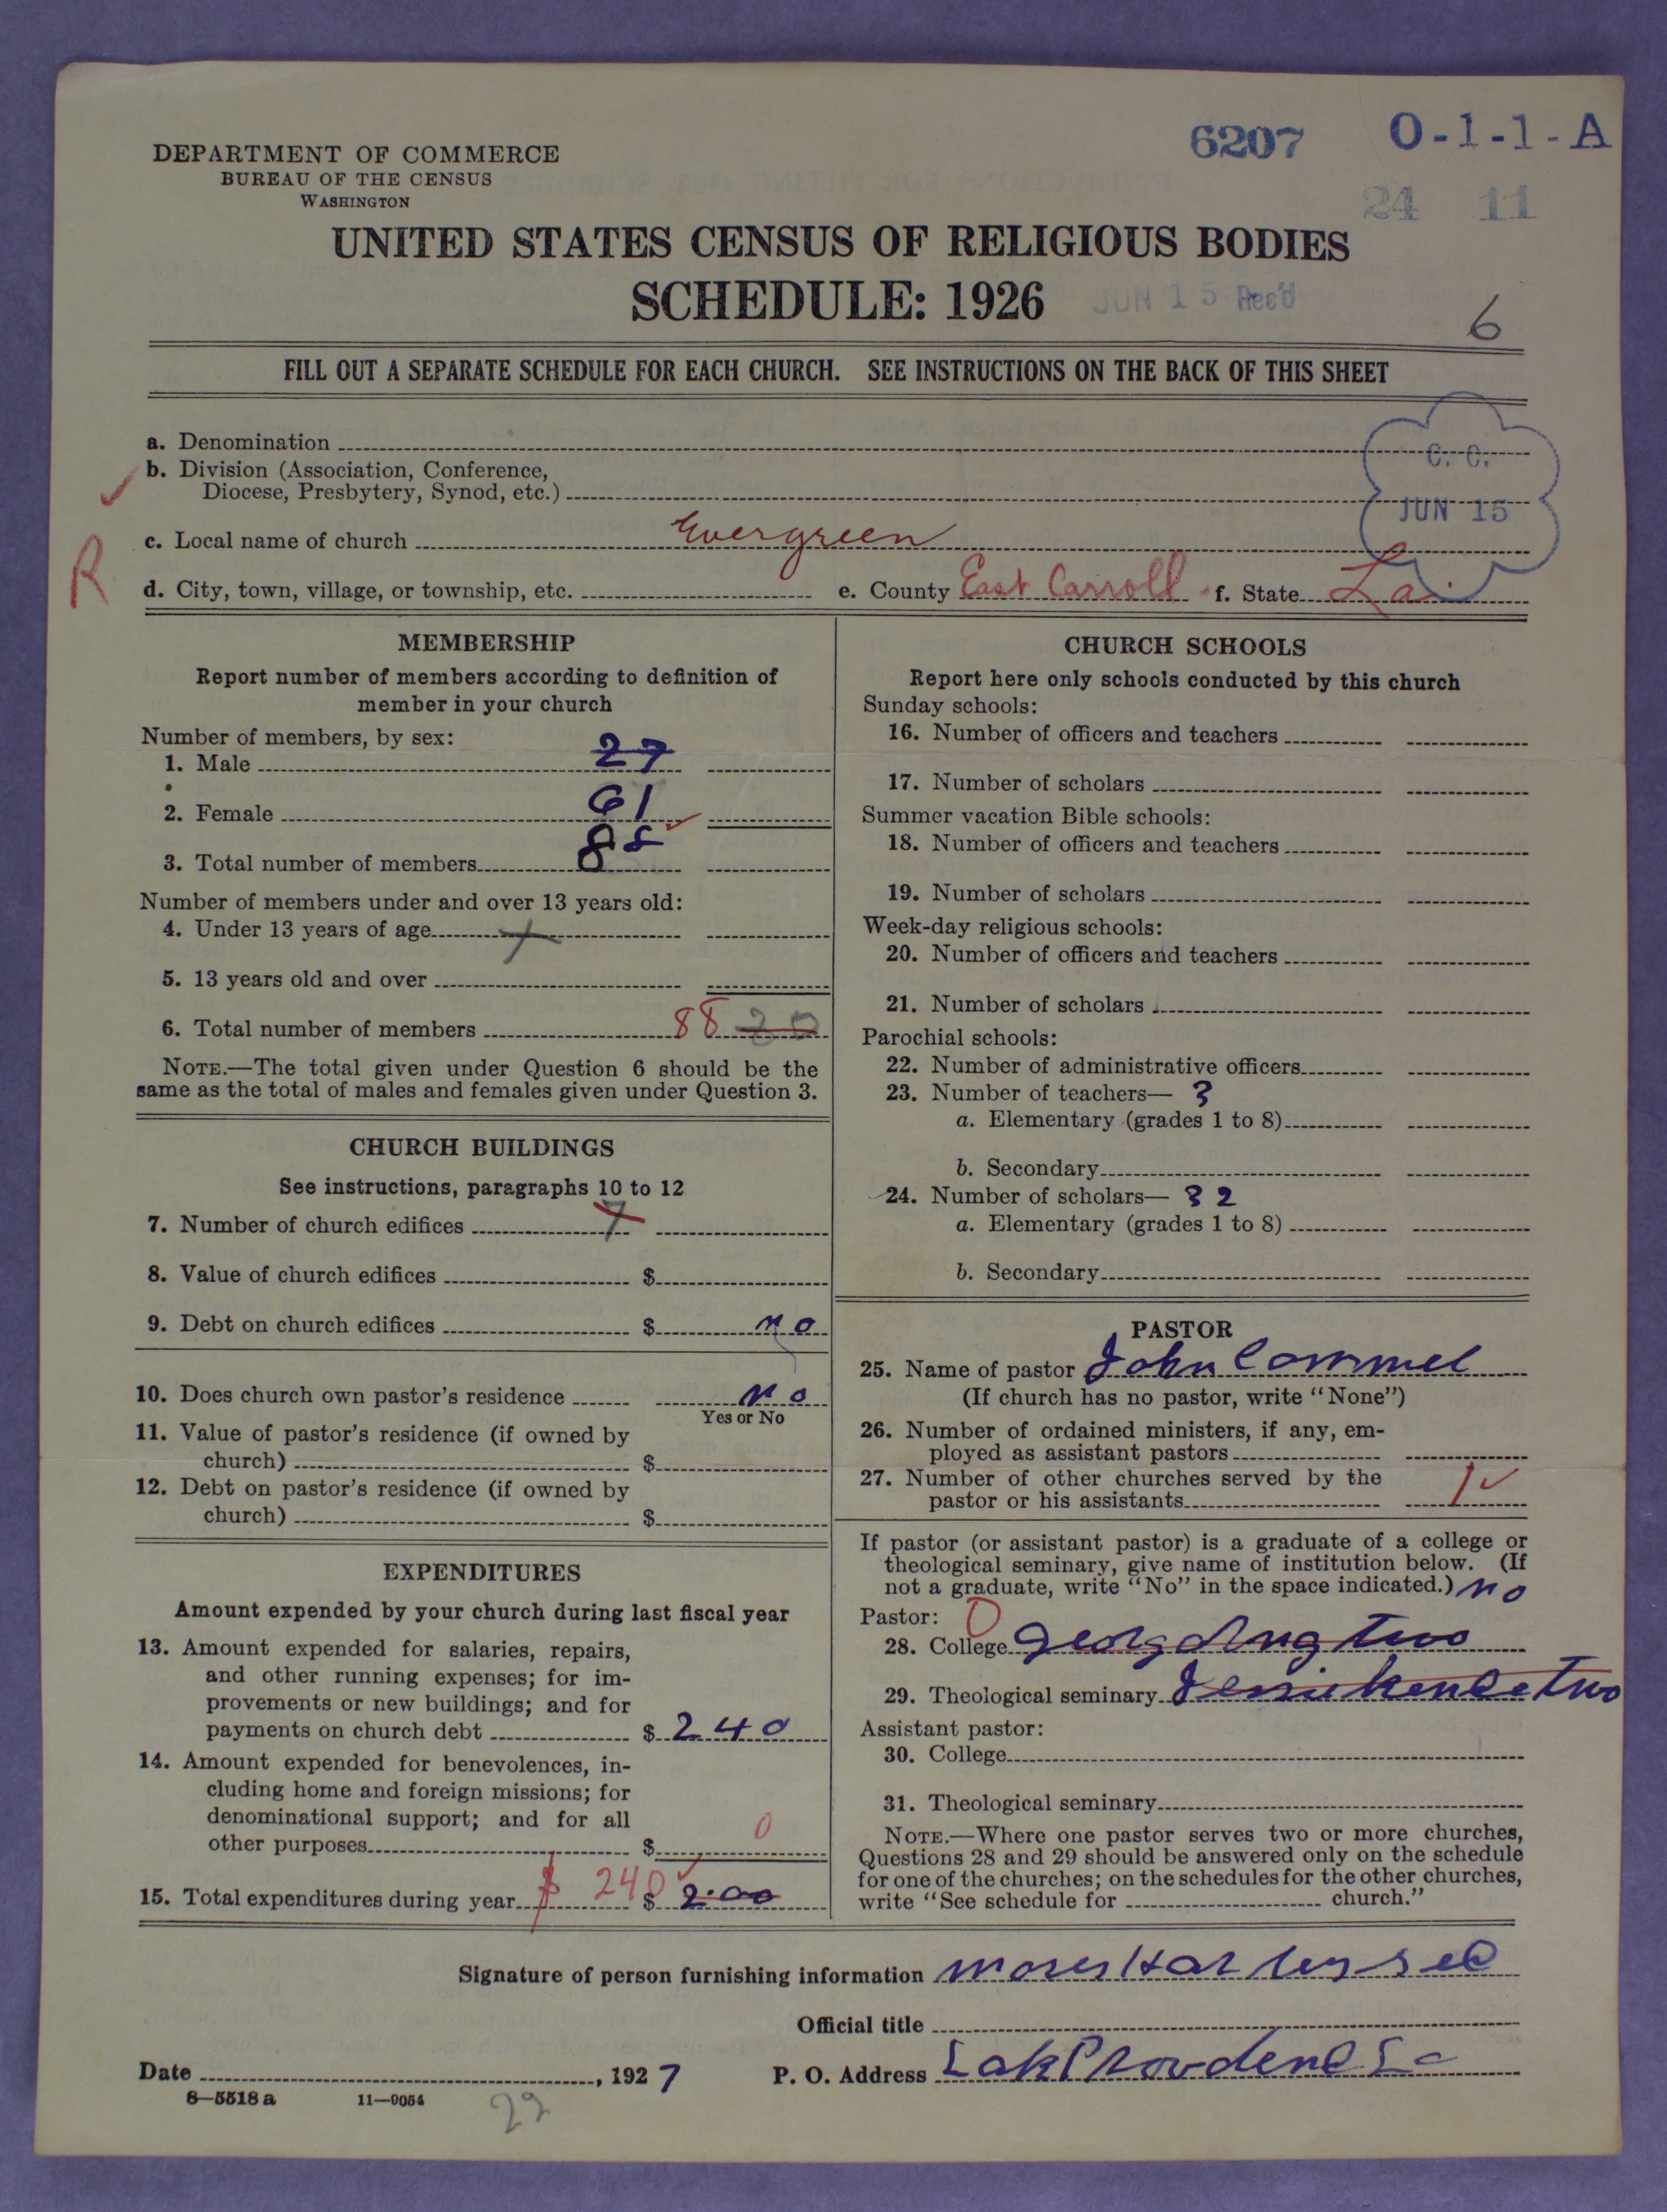 6207 O-1-1-A
DEPARTMENT OF COMMERCE
BUREAU OF THE CENSUS
WASHINGTON
24 11
UNITED STATES CENSUS OF RELIGIOUS BODIES
SCHEDULE: 1926
JUN 15 Rec'd
6
FILL OUT A SEPARATE SCHEDULE FOR EACH CHURCH. SEE INSTRUCTIONS ON THE BACK OF THIS SHEET
a. Denomination
C. C.
b. Division (Association, Conference,
Diocese, Presbytery, Synod, etc.)
JUN 15
c. Local name of church Evergreen
R
d. City, town, village, or township, etc. e. County East Carroll f. State La.
MEMBERSHIP
Report number of members according to definition of
member in your church
Number of members, by sex:
1. Male 27
2. Female 61
3. Total number of members 88
Number of members under and over 13 years old:
4. Under 13 years of age
5. 13 years old and over
6. Total number of members 88
NOTE.—The total given under Question 6 should be the
same as the total of males and females given under Question 3.
CHURCH BUILDINGS
See instructions, paragraphs 10 to 12
7. Number of church edifices
8. Value of church edifices $
9. Debt on church edifices $ no
10. Does church own pastor's residence no
Yes or No
11. Value of pastor's residence (if owned by
church) $
12. Debt on pastor's residence (if owned by
church) $
EXPENDITURES
Amount expended by your church during last fiscal year
13. Amount expended for salaries, repairs,
and other running expenses; for im-
provements or new buildings; and for
payments on church debt $ 240
14. Amount expended for benevolences, in-
cluding home and foreign missions; for
denominational support; and for all
other purposes $ 0
15. Total expenditures during year $ 240 $ 2.00
CHURCH SCHOOLS
Report here only schools conducted by this church
Sunday schools:
16. Number of officers and teachers
17. Number of scholars
Summer vacation Bible schools:
18. Number of officers and teachers
19. Number of scholars
Week-day religious schools:
20. Number of officers and teachers
21. Number of scholars
Parochial schools:
22. Number of administrative officers
23. Number of teachers— 3
a. Elementary (grades 1 to 8)
b. Secondary
24. Number of scholars— 32
a. Elementary (grades 1 to 8)
b. Secondary
PASTOR
25. Name of pastor John
(If church has no pastor, write "None")
26. Number of ordained ministers, if any, em-
ployed as assistant pastors
27. Number of other churches served by the
pastor or his assistants 1
If pastor (or assistant pastor) is a graduate of a college or
theological seminary, give name of institution below. (If
not a graduate, write "No" in the space indicated.) no
Pastor: 0
28. College two
29. Theological seminary two
Assistant pastor:
30. College
31. Theological seminary
NOTE.—Where one pastor serves two or more churches,
Questions 28 and 29 should be answered only on the schedule
for one of the churches; on the schedules for the other churches,
write "See schedule for church."
Signature of person furnishing information moses
Official title
Date , 1927 P. O. Address Lak Provdenc La
8—5518 a 11—9054
29